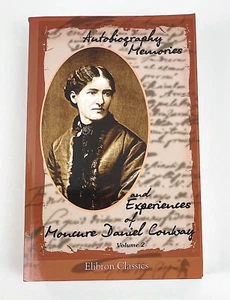 Autobiography
Memories
and
Experiences
of
Moncure Daniel Conway
Volume 2
Elibron Classics